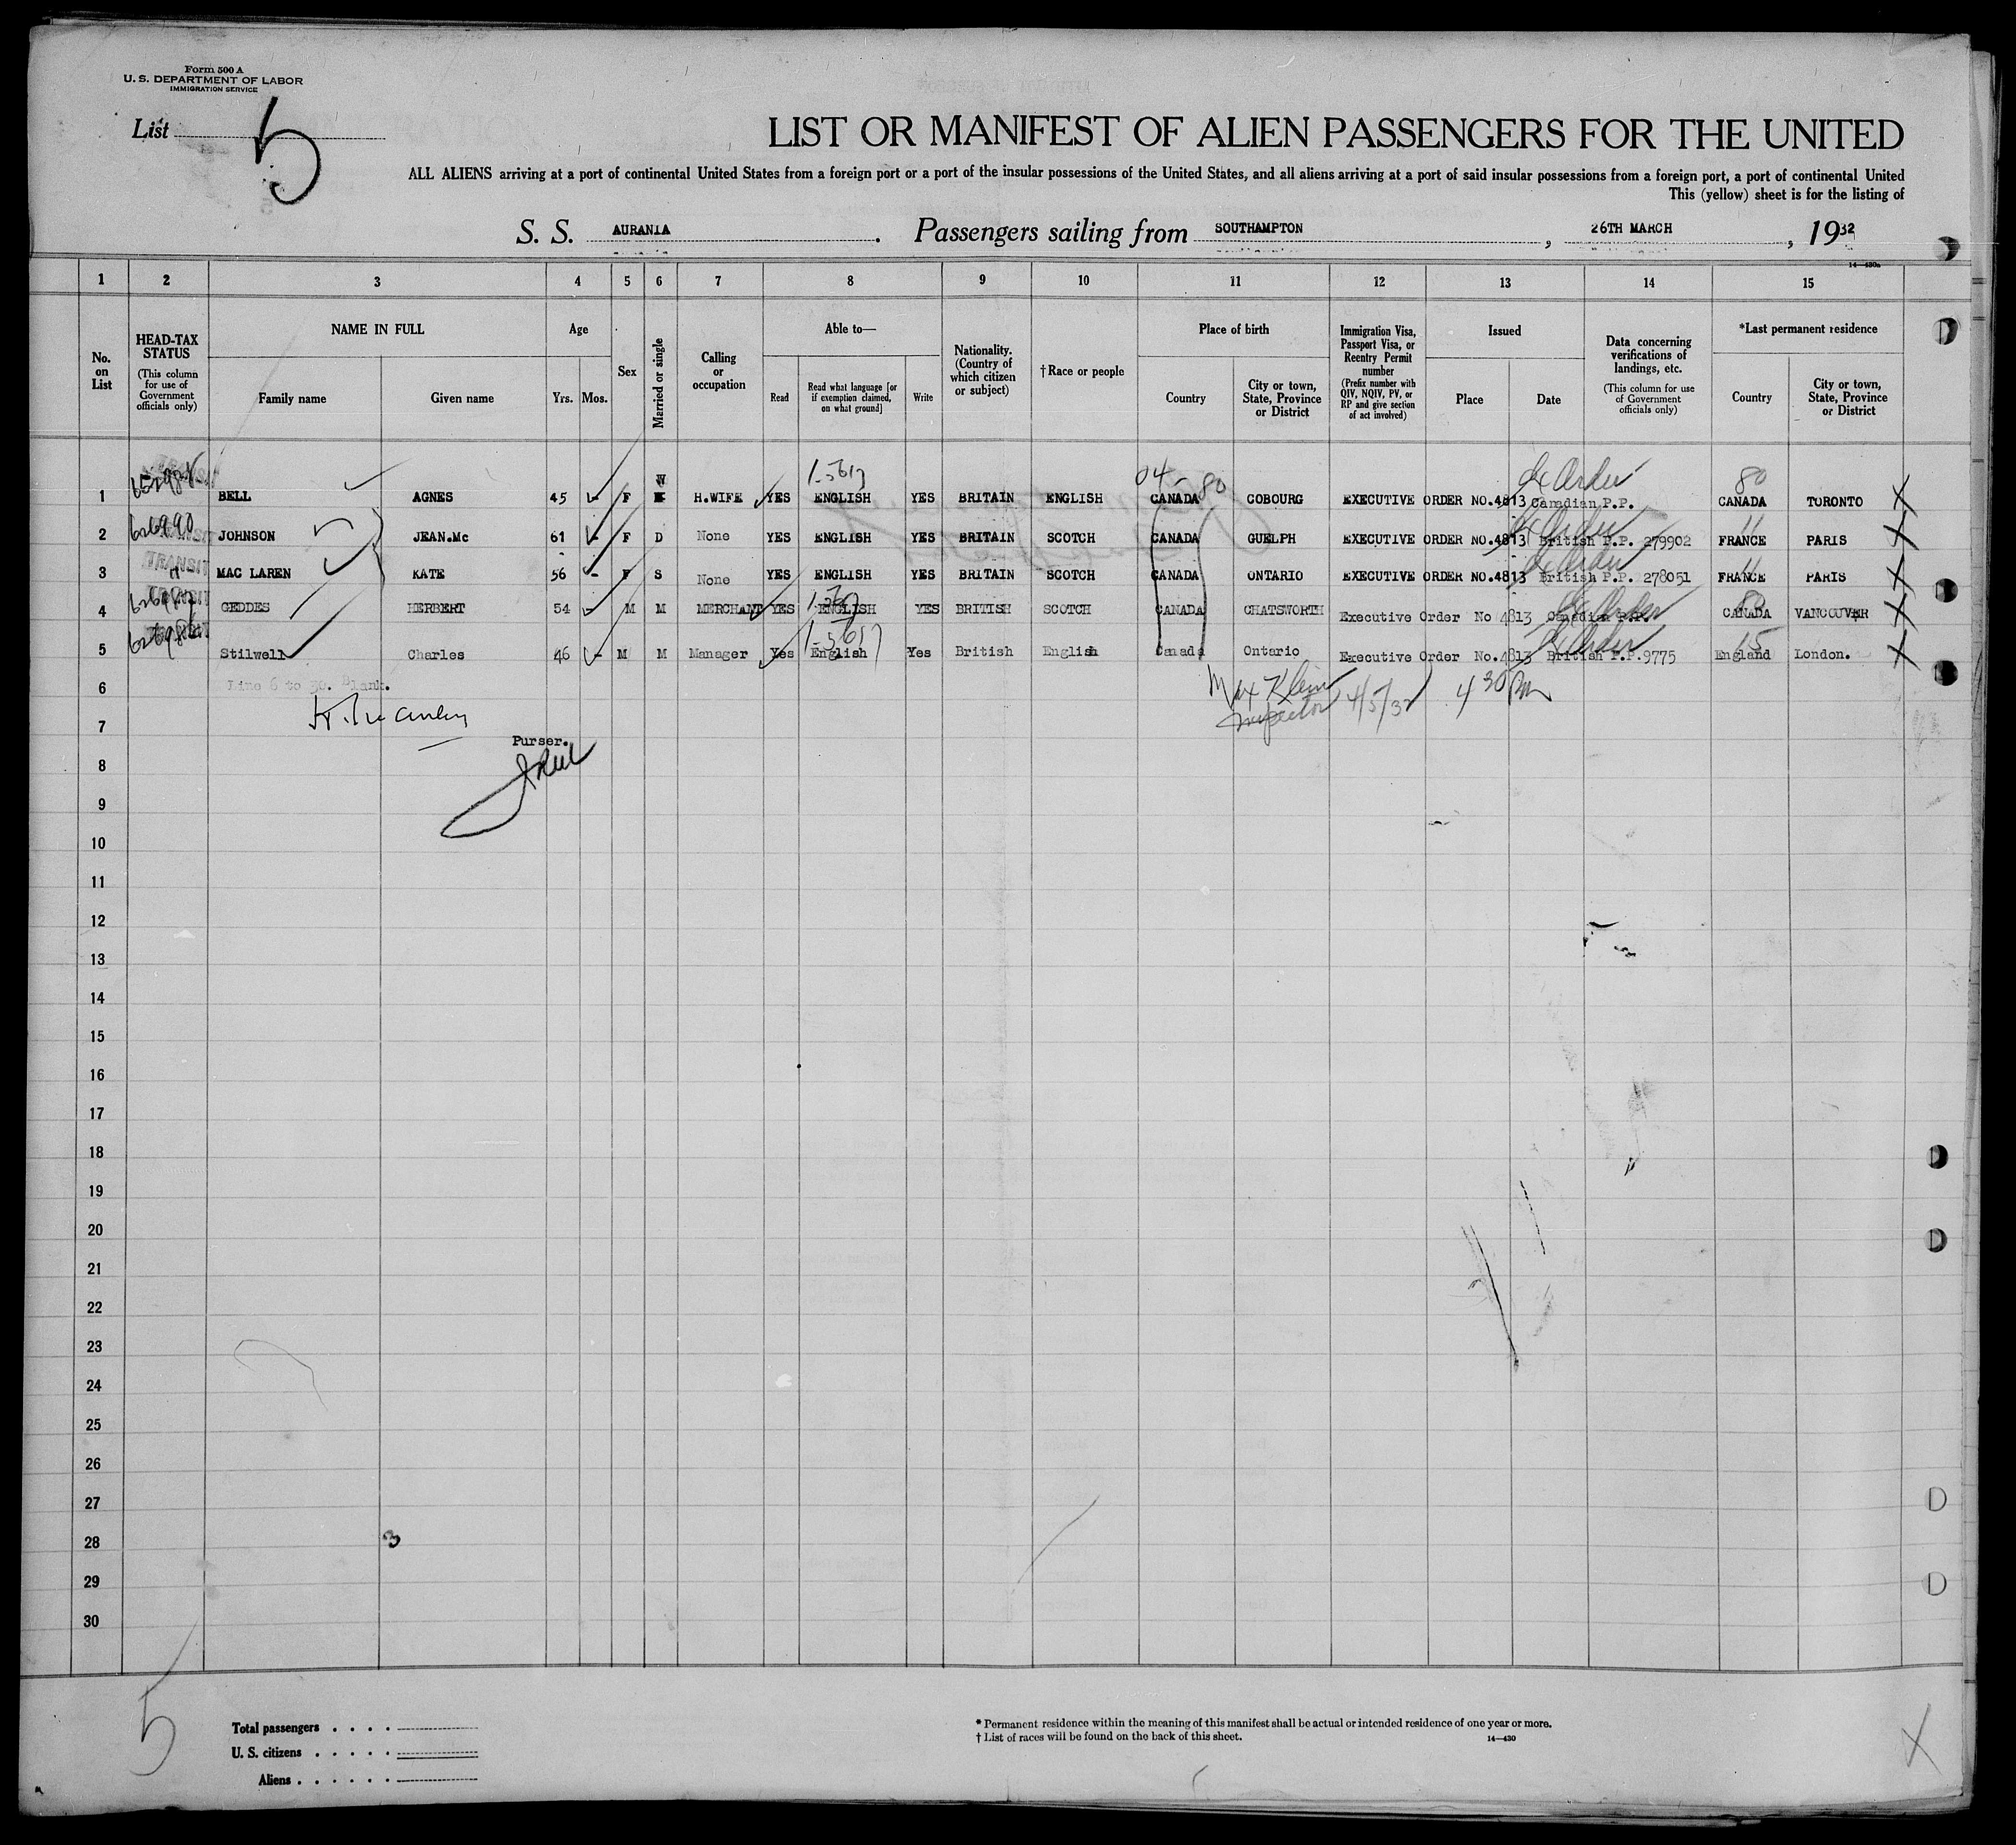 Form 500 A
U. S. DEPARTMENT OF LABOR
IMMIGRATION SERVICE
List 5
LIST OR MANIFEST OF ALIEN PASSENGERS FOR THE UNITED
ALL ALIENS arriving at a port of continental United States from a foreign port or a port of the insular possessions of the United States, and all aliens arriving at a port of said insular possessions from a foreign port, a port of continental United
This (yellow) sheet is for the listing of
S. S. AURANIA. Passengers sailing from SOUTHAMPTON, 26TH MARCH, 1932
14—430a
1 2 3 4 5 6 7 8 9 10 11 12 13 14 15
No. on List
HEAD-TAX STATUS
(This column for use of Government officials only)
NAME IN FULL
Family name
Given name
Age
Yrs.
Mos.
Sex
Married or single
Calling or occupation
Able to—
Read
Read what language [or if exemption claimed, on what ground]
Write
Nationality. (Country of which citizen or subject)
†Race or people
Place of birth
Country
City or town, State, Province or District
Immigration Visa, Passport Visa, or Reentry Permit number
(Prefix number with QIV, NQIV, PV, or RP and give section of act involved)
Issued
Place
Date
Data concerning verifications of landings, etc.
(This column for use of Government officials only)
*Last permanent residence
Country
City or town, State, Province or District
04 - 80 Ex Order 80
1 BELL AGNES 45 - F W H.WIFE YES ENGLISH YES BRITAIN ENGLISH CANADA COBOURG EXECUTIVE ORDER NO.4813 Canadian P.P. CANADA TORONTO
626990 Ex Order 11
2 JOHNSON JEAN.Mc 61 - F D None YES ENGLISH YES BRITAIN SCOTCH CANADA GUELPH EXECUTIVE ORDER NO.4813 British P.P. 279902 FRANCE PARIS
TRANSIT Ex Order 11
3 MAC LAREN KATE 56 - F S None YES ENGLISH YES BRITAIN SCOTCH CANADA ONTARIO EXECUTIVE ORDER NO.4813 British P.P. 278051 FRANCE PARIS
TRANSIT Ex Order 80
4 GEDDES HERBERT 54 M M MERCHANT YES ENGLISH YES BRITISH SCOTCH CANADA CHATSWORTH Executive Order No 4813 Canadian P.P. CANADA VANCOUVER
TRANSIT Ex Order 15
5 Stilwell Charles 46 - M M Manager Yes English Yes British English Canada Ontario Executive Order No.4813 British P.P. 9775 England London.
6 Line 6 to 30. Blank.
Max Klein Inspector 4/5/32 4 30 Pm
7
Purser.
8
9
10
11
12
13
14
15
16
17
18
19
20
21
22
23
24
25
26
27
28 3
29
30
5
Total passengers
U. S. citizens
Aliens
* Permanent residence within the meaning of this manifest shall be actual or intended residence of one year or more.
† List of races will be found on the back of this sheet.
14—430
X